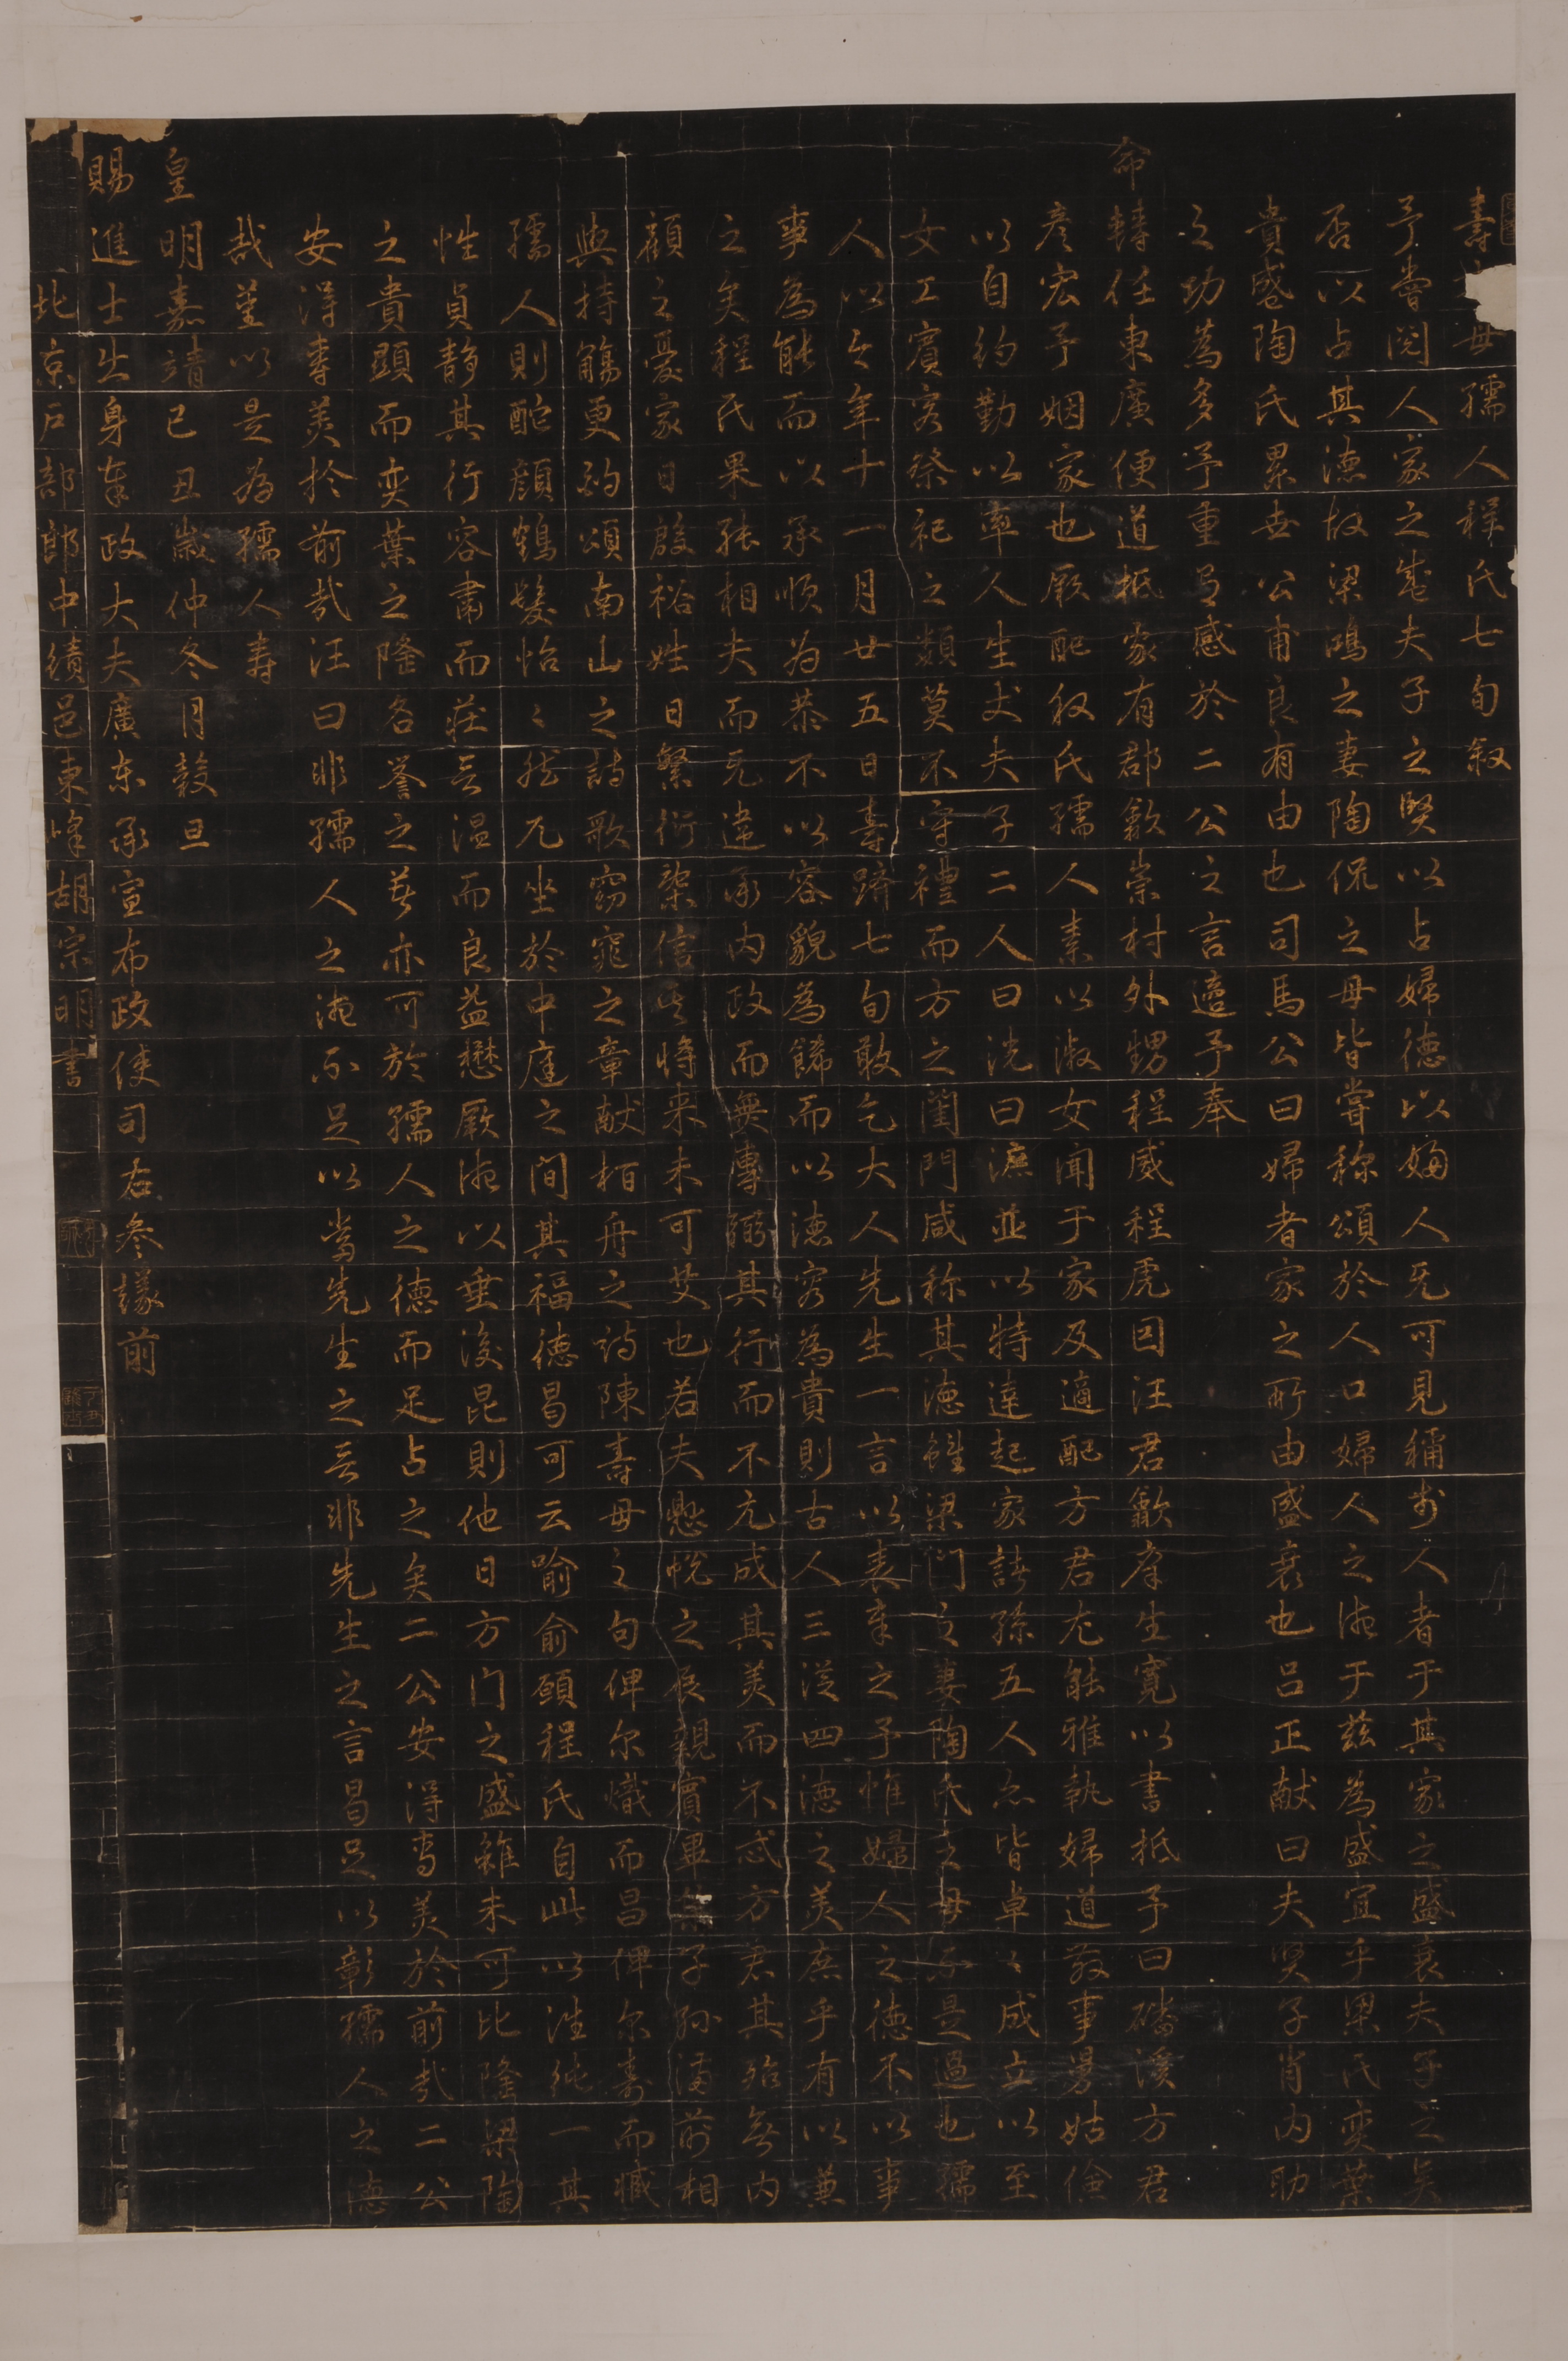 壽 母孺人程氏七旬叙
予嘗閱人家之盛夫子之賢以占婦德以婦人旡可見稱於人者于其家之盛衰夫子之矣
否以占其德故梁鴻之妻陶侃之母皆嘗稱頌於人口婦人之德于茲為盛宜乎梁氏奕葉
貴盛陶氏累世公甫良有由也司馬公曰婦者家之所由盛衰也呂正献曰夫兴子肖内助
之功為多予重有感於二公之言適予奉
命轉任東廣便道抵家有郡歙崇村外甥程威程虎因汪君歙庠生寛以書抵予曰磻溪方君
彦宏予姻家也厥配叙氏孺人素以淑女聞于家及適配方君尤能雅執婦道敬事舅姑儉
以自約勤以率人生丈夫子二人曰洸曰濂並以特達起家諸孫五人亦皆卓々成立以至
女工賓客祭祀之類莫不守禮而方之閨門咸称其德雖梁門之妻陶氏之母不是過也孺
人以今年十一月廿五日壽躋七旬敢乞大人先生一言以表章之予惟婦人之德不以事
事為能而以承順为恭不以容貌為餙而以德容為貴則古人三從四德之美庶乎有以兼
之矣程氏果能相夫而旡違承内政而無專 其行而不 成其美而不忒方君其殆無内
顧之憂家日殷裕姓日繁衍 信 将来未可 也若夫懸帨之辰親賓畢 子孫滿前相
與持觴更酌頌南山之詩歌窈窕之章献栢舟之 陳壽母之句俾尔熾而昌俾尔壽而臧
孺人則酡顔鶴髮怡々然兀坐於中庭之間其福德曷可云喻俞願程氏自此以往純一其
性貞靜其行容肅而莊言温而良益懋厥德以垂後昆則他日方门之盛雖未可比隆梁陶
之貴顕而奕葉之隆名譽之著亦可於孺人之德而足占之矣二公安得專美於前哉二公
安得專美於前哉汪曰非孺人之德不足以當先生之言非先生之言曷足以彰孺人之德
哉並以是為孺人壽
皇明嘉靖己丑歲仲冬月穀旦
賜進士出身奉政大夫廣东承宣布政使司右叅議前
北京戶部郎中績邑東峰胡宗明書